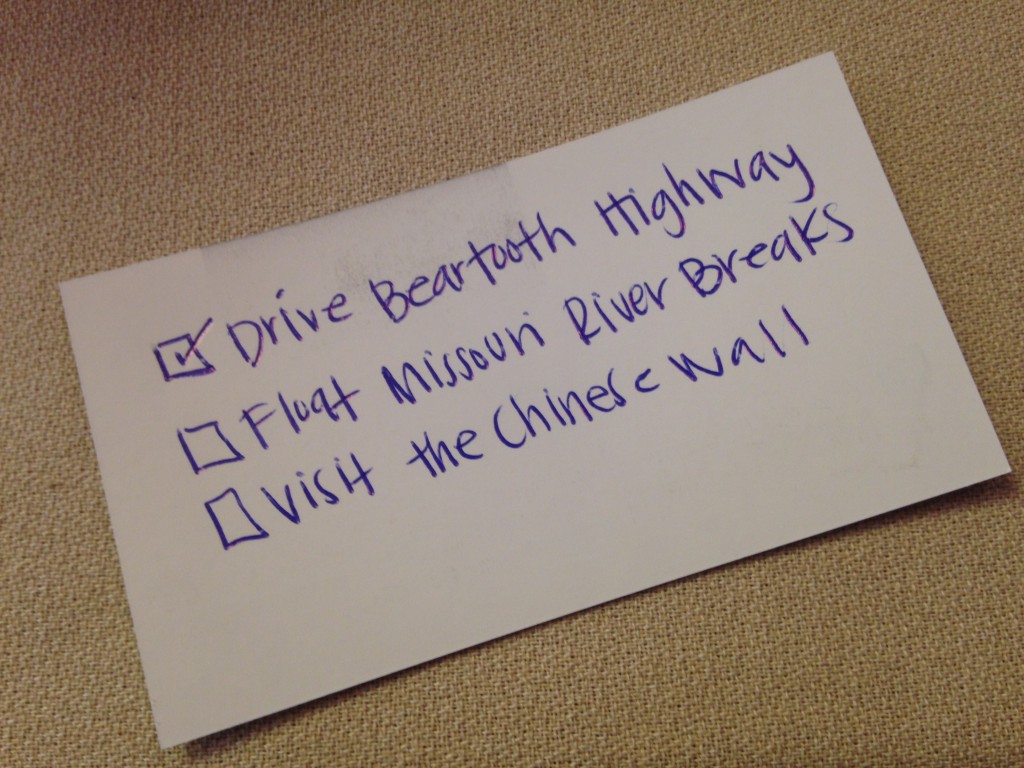 ☑ Drive Beartooth Highway
☐ Float Missouri River Breaks
☐ Visit the Chinese Wall